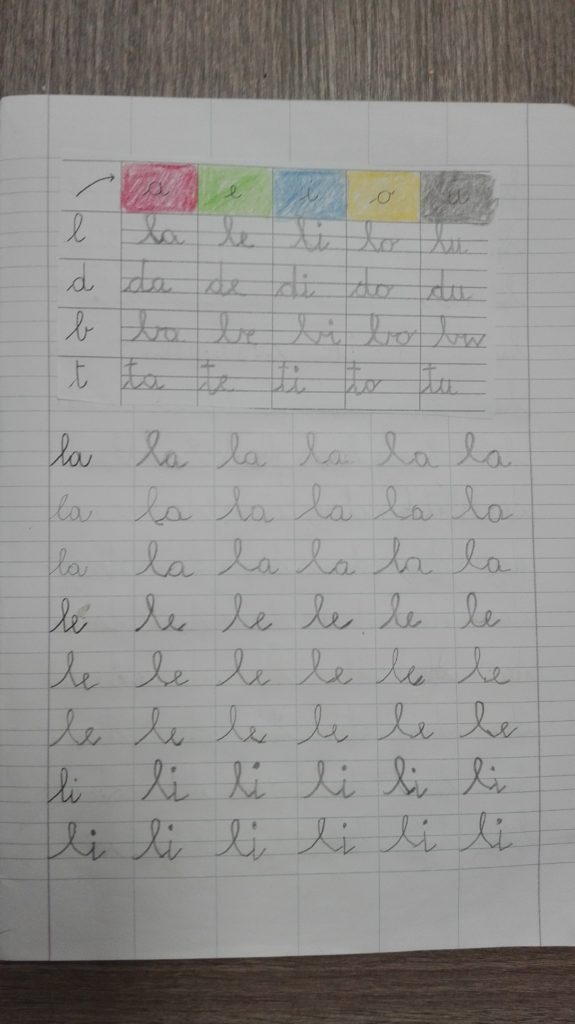 a e i o u
l la le li lo lu
d da de di do du
b ba be bi bo bu
t ta te ti to tu
la la la la la la
la la la la la la
la la la la la la
le le le le le le
le le le le le le
le le le le le le
li li li li li li
li li li li li li